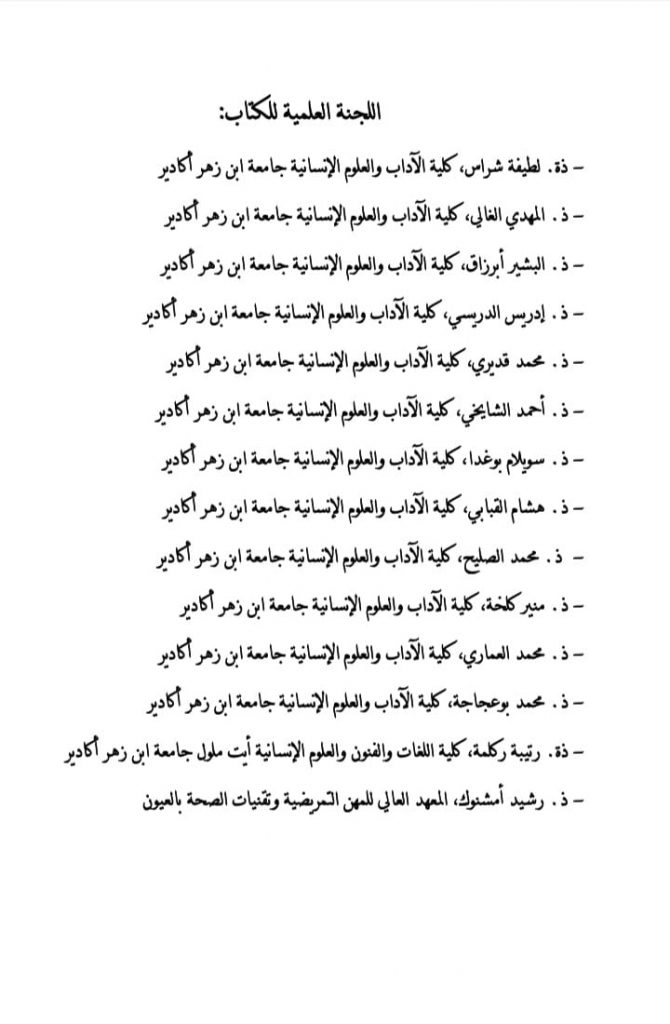 اللجنة العلمية للكتاب:
– ذة. لطيفة شراس، كلية الآداب والعلوم الإنسانية جامعة ابن زهر أكادير
– ذ. المهدي الغالي، كلية الآداب والعلوم الإنسانية جامعة ابن زهر أكادير
– ذ. البشير أبرزاق، كلية الآداب والعلوم الإنسانية جامعة ابن زهر أكادير
– ذ. إدريس الدريسي، كلية الآداب والعلوم الإنسانية جامعة ابن زهر أكادير
– ذ. محمد قديري، كلية الآداب والعلوم الإنسانية جامعة ابن زهر أكادير
– ذ. أحمد الشايخي، كلية الآداب والعلوم الإنسانية جامعة ابن زهر أكادير
– ذ. سويلام بوغدا، كلية الآداب والعلوم الإنسانية جامعة ابن زهر أكادير
– ذ. هشام القبابي، كلية الآداب والعلوم الإنسانية جامعة ابن زهر أكادير
– ذ. محمد الصليح، كلية الآداب والعلوم الإنسانية جامعة ابن زهر أكادير
– ذ. منير كلخة، كلية الآداب والعلوم الإنسانية جامعة ابن زهر أكادير
– ذ. محمد العماري، كلية الآداب والعلوم الإنسانية جامعة ابن زهر أكادير
– ذ. محمد بوعجاجة، كلية الآداب والعلوم الإنسانية جامعة ابن زهر أكادير
– ذة. رتيبة ركلمة، كلية اللغات والفنون والعلوم الإنسانية أيت ملول جامعة ابن زهر أكادير
– ذ. رشيد أمشنوك، المعهد العالي للمهن التمريضية وتقنيات الصحة بالعيون